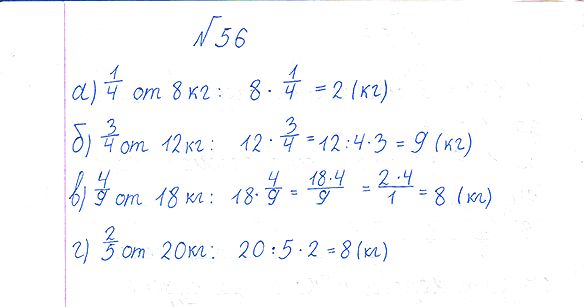 №56
а) 1/4 от 8 кг: 8 · 1/4 = 2 (кг)
б) 3/4 от 12 кг: 12 · 3/4 = 12 : 4 · 3 = 9 (кг)
в) 4/9 от 18 кг: 18 · 4/9 = 18·4/9 = 2·4/1 = 8 (кг)
г) 2/5 от 20 кг: 20 : 5 · 2 = 8 (кг)